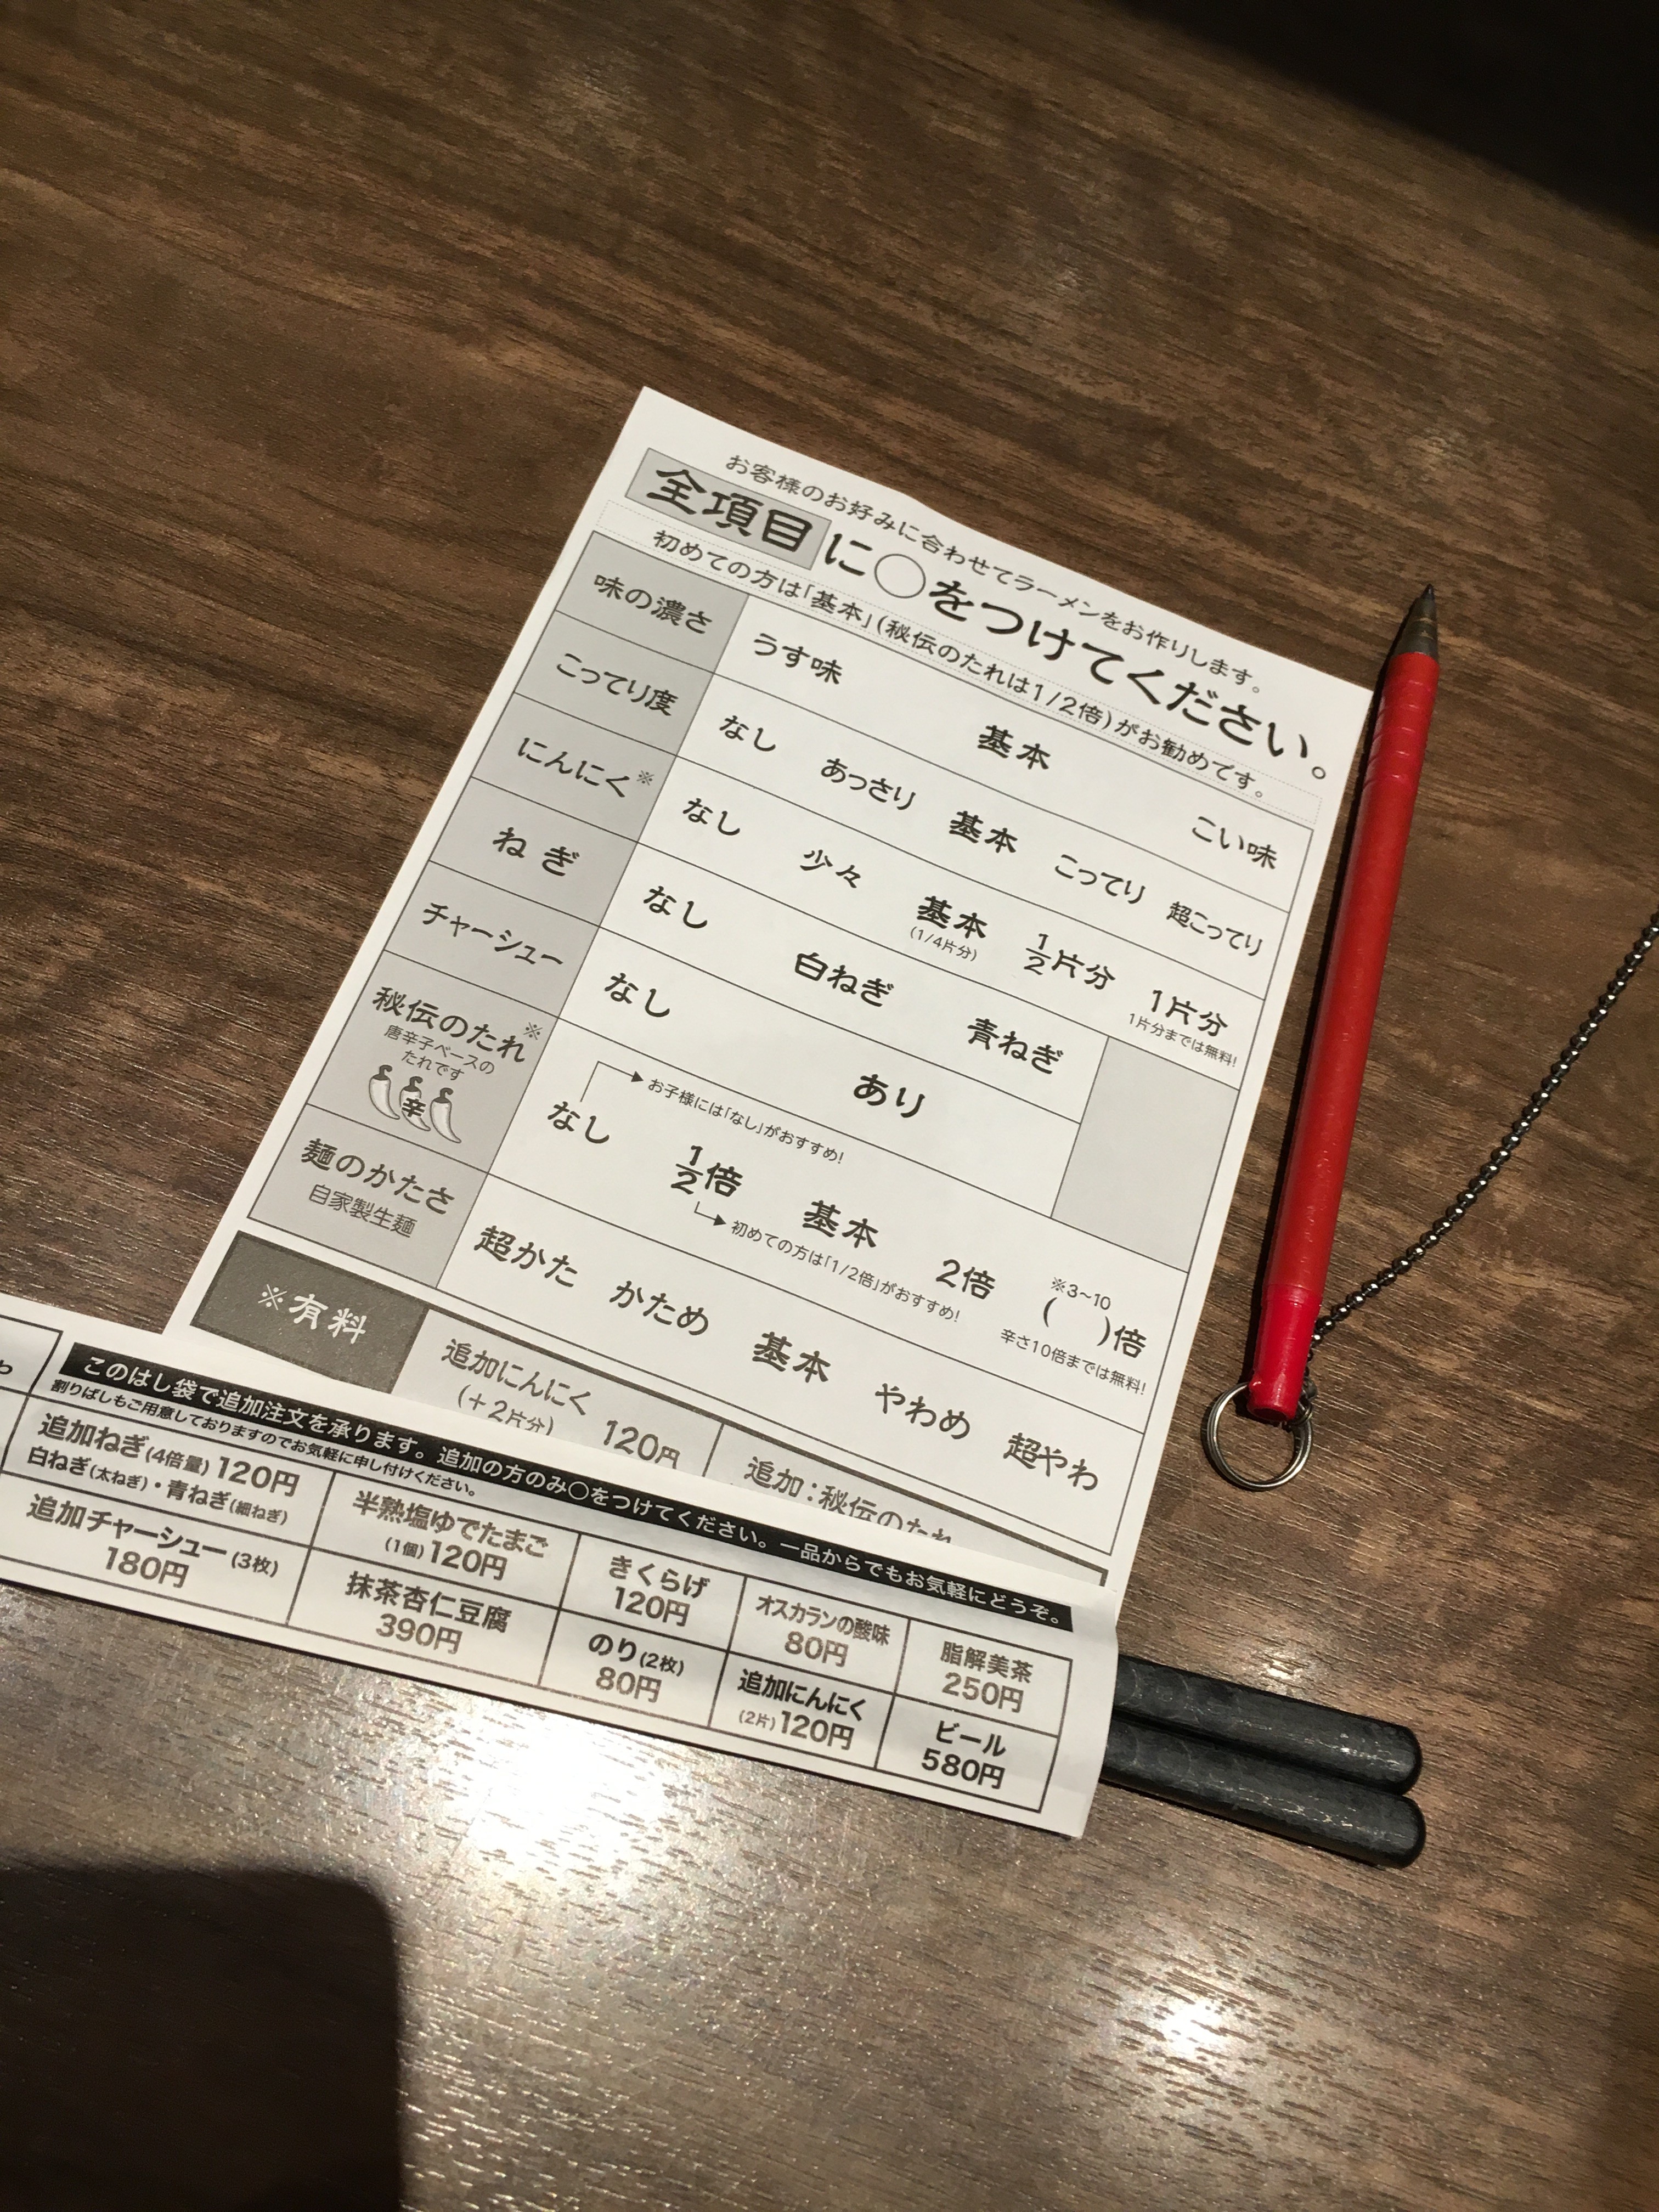 お客様のお好みに合わせてラーメンをお作りします。
全項目に○をつけてください。
初めての方は「基本」(秘伝のたれは1/2倍)がお勧めです。
味の濃さ うす味 基本 こい味
こってり度 なし あっさり 基本 こってり 超こってり
にんにく※ なし 少々 基本 1/2片分 1片分
(1/4片分) 1片分までは無料!
ねぎ なし 白ねぎ 青ねぎ
チャーシュー なし あり
秘伝のたれ※
唐辛子ベースの
たれです
辛
お子様には「なし」がおすすめ!
なし 1/2倍 基本 2倍 ( )倍
※3~10
初めての方は「1/2倍」がおすすめ!
辛さ10倍までは無料!
麺のかたさ 超かた かため 基本 やわめ 超やわ
自家製生麺
※有料
追加にんにく
(+2片分) 120円
追加:秘伝のたれ
わ
このはし袋で追加注文を承ります。追加の方のみ○をつけてください。一品からでもお気軽にどうぞ。
割りばしもご用意しておりますのでお気軽に申し付けください。
追加ねぎ(4倍量)120円
白ねぎ(太ねぎ)・青ねぎ(細ねぎ)
半熟塩ゆでたまご
(1個)120円
きくらげ
120円
オスカランの酸味
80円
脂解美茶
250円
追加チャーシュー(3枚)
180円
抹茶杏仁豆腐
390円
のり(2枚)
80円
追加にんにく
(2片)120円
ビール
580円